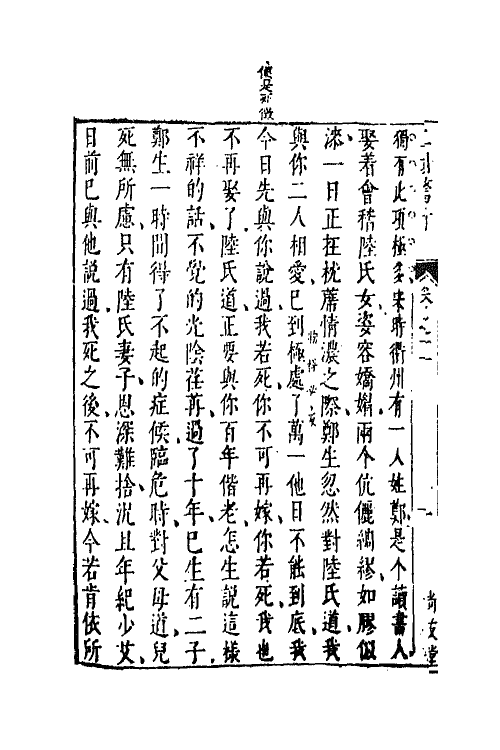 獨有此項極多宋時衢州有一人姓鄭是个讀書人
娶着會稽陸氏女姿容嬌媚兩个伉儷綢繆如膠似
漆一日正在枕蓆情濃之際鄭生忽然對陸氏道我
與你二人相愛已到極處了萬一他日不能到底我
今日先與你說過我若死你不可再嫁你若死我也
不再娶了陸氏道正要與你百年偕老怎生說這樣
不祥的話不覺的光陰荏苒過了十年已生有二子
鄭生一時間得了不起的症候臨危時對父母道兒
死無所慮只有陸氏妻子恩深難捨況且年紀少艾
日前已與他說過我死之後不可再嫁今若肯依所
尚友堂